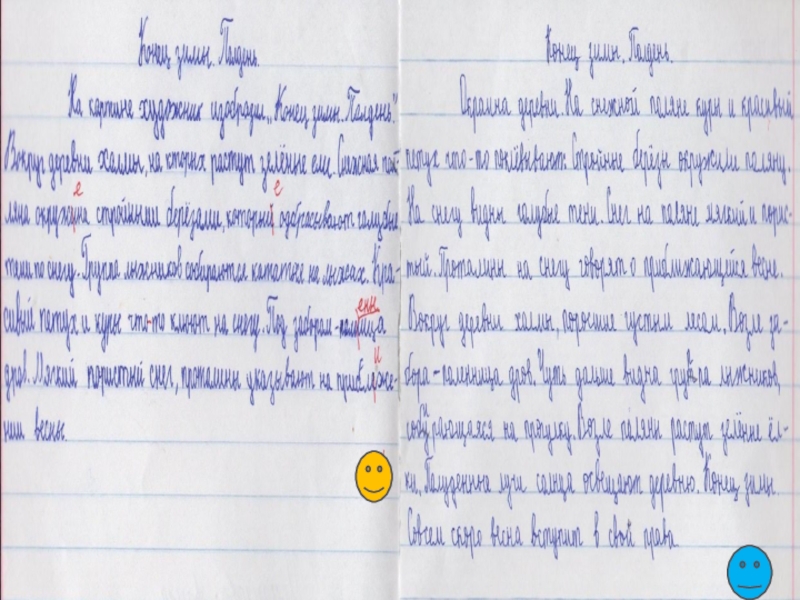 Конец зимы. Полдень.
На картине художник изобразил „Конец зимы. Полдень."
Вокруг деревни холмы, на кторых растут зелёные ели. Снежная по-
е е
ляна окружина стройными берёзами, которые одбрасывают голубые
тени по снегу. Группа лыжников собираются кататься на лыжах. Кра-
сивый петух и куры что-то клюют на снегу. Под забором-
ены
дров. Мягкий пористый снег, проталины указывают на приближе-
и
нии весны.
Конец зимы. Полдень.
Окраина деревни. На снежной поляне куры и красивый
петух что-то поклёвывают. Стройные берёзы окружили поляну.
На снегу видны голубые тени. Снег на поляне мягкий и порис-
тый. Проталины на снегу говорят о приближающейся весне.
Вокруг деревни холмы, поросшие густым лесом. Возле за-
бора - поленница дров. Чуть дальше видна группа лыжников,
собирающаяся на прогулку. Возле поляны растут зелёные ёл-
ки. Полуденные лучи солнца освещают деревню. Конец зимы.
Совсем скоро весна вступит в свой права.